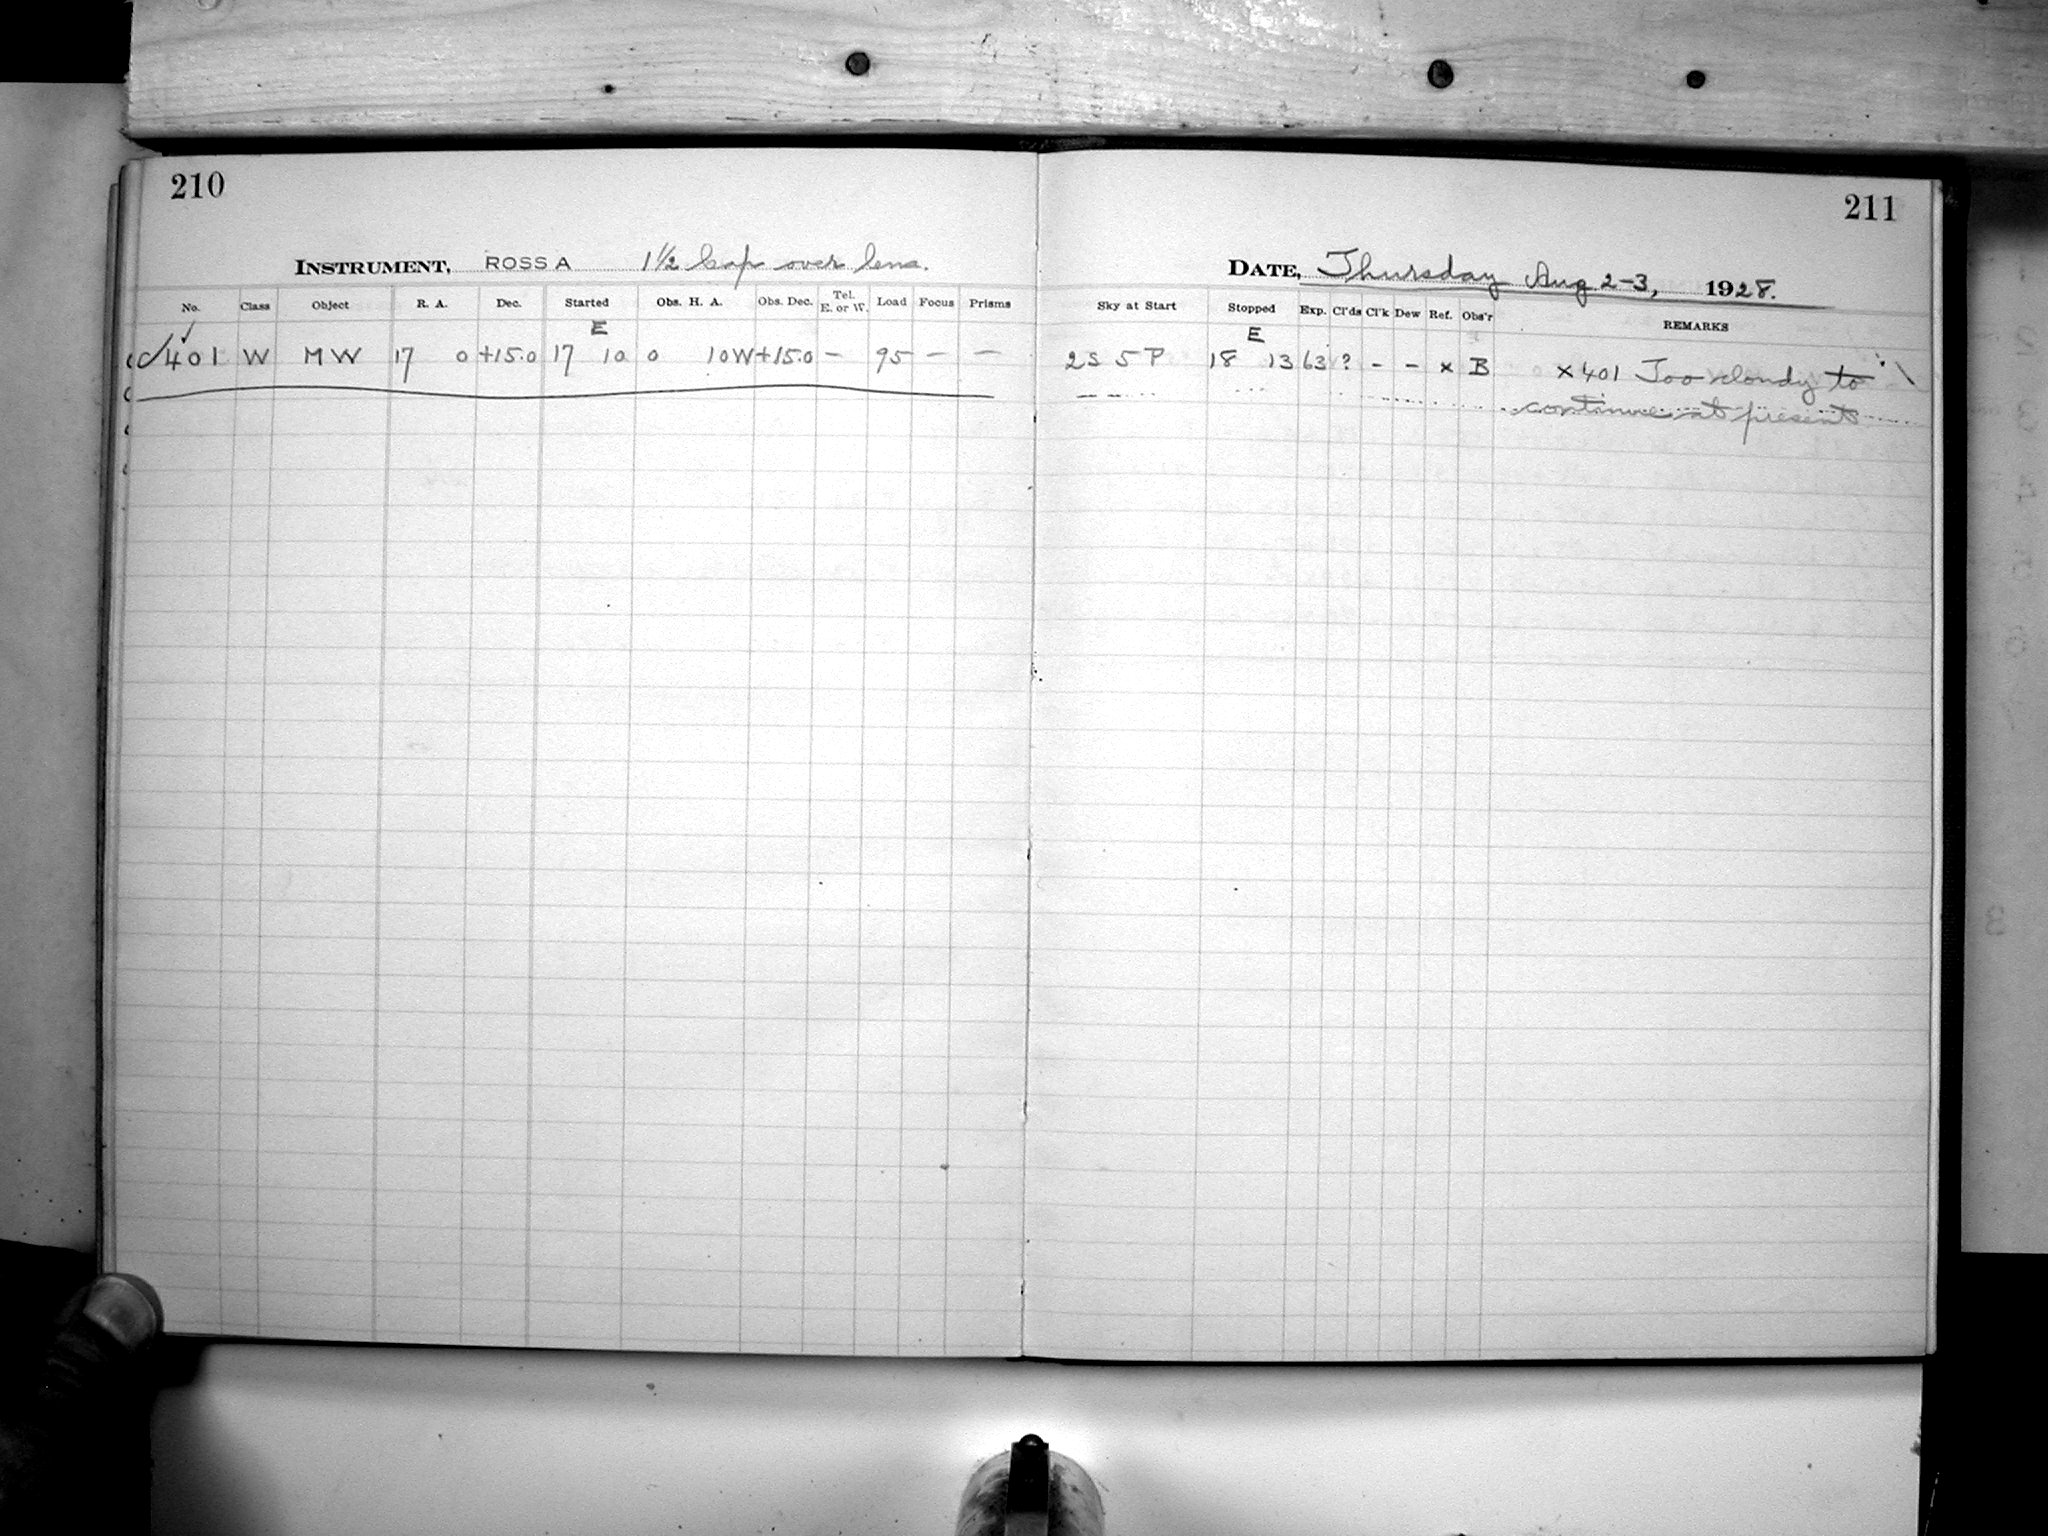 210
INSTRUMENT, ROSS A 1½ Cap over lens.
No. Class Object R. A. Dec. Started Obs. H. A. Obs. Dec. Tel. E. or W. Load Focus Prisms
E
✓401 W MW 17 0 +15.0 17 10 0 10W +15.0 – 95 – –
211
DATE, Thursday Aug 2-3, 1928.
Sky at Start Stopped Exp. Cl'ds Cl'k Dew Ref. Obs'r REMARKS
E
2S 5 P 18 13 63 ? - - x B x401 Too cloudy to
continue at present